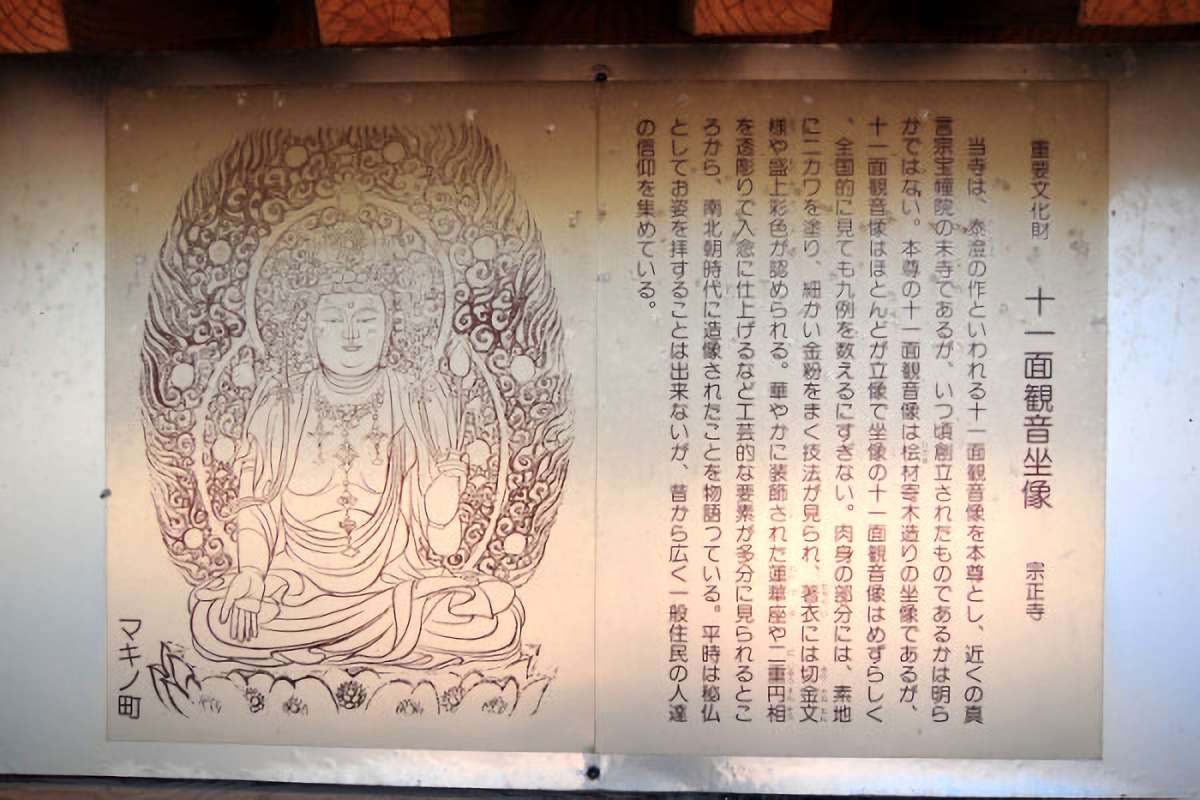 重要文化財 十一面観音坐像 宗正寺
当寺は、泰澄の作といわれる十一面観音像を本尊とし、近くの真
言宗宝幢院の末寺であるが、いつ頃創立されたものであるかは明ら
かではない。本尊の十一面観音像は桧材寄木造りの坐像であるが、
十一面観音像はほとんどが立像で坐像の十一面観音像はめずらしく
、全国的に見ても九例を数えるにすぎない。肉身の部分には、素地
にニカワを塗り、細かい金粉をまく技法が見られ、著衣には切金文
様や盛上彩色が認められる。華やかに装飾された蓮華座や二重円相
を透彫りで入念に仕上げるなど工芸的な要素が多分に見られるとこ
ろから、南北朝時代に造像されたことを物語っている。平時は秘仏
としてお姿を拝することは出来ないが、昔から広く一般住民の人達
の信仰を集めている。
マキノ町